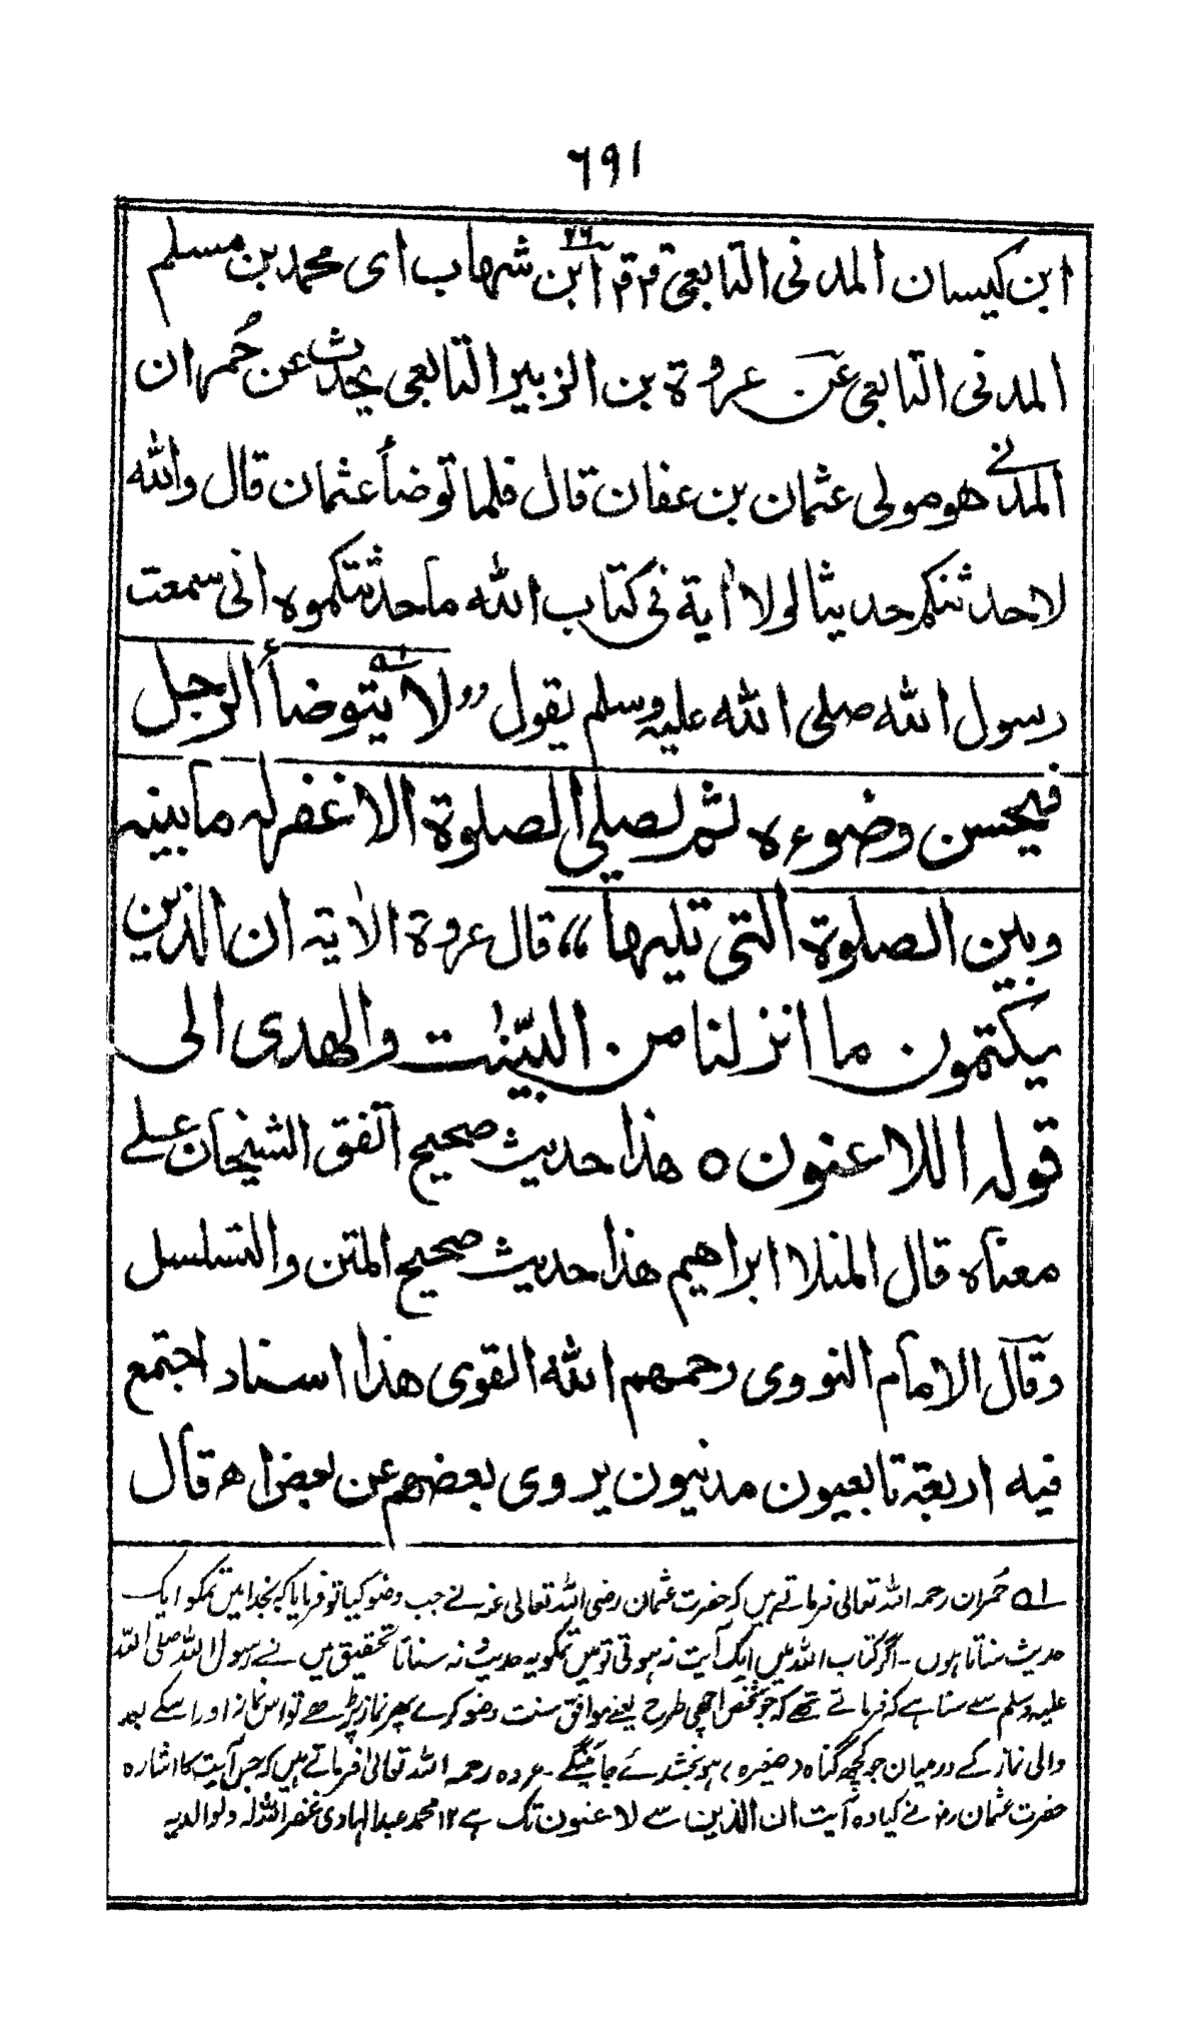 ٦٩١
ابن كيسان المدنى التابعى قرقرأ ابن شهاب اى محمد بن مسلم
المدنى التابعى عن عروة بن الزبير التابعى يحدث عن حُمران
المدنى هو مولى عثمان بن عفان قال فلما توضأ عثمان قال والله
لاحدثنكم حديثا لولا أية فى كتاب الله ما حدثتكموه انى سمعت
رسول الله صلى الله عليه وسلم يقول ”لا يتوضأ الرجل
فيحسن وضوءه ثم ليصلى الصلوة الا غفر له ما بينه
وبين الصلوة التى تليها“ قال عروة الاٰية ان الذين
يكتمون ما انزلنا من البيّنٰت والهدى الى
قوله اللاعنون ٥ هذا حديث صحيح اتفق الشيخان على
معناه قال المنلا ابراهيم هذا حديث صحيح المتن والتسلسل
وقال الامام النووى رحمهم الله القوى هذا اسناد اجتمع
فيه اربعة تابعيون مدنيون يروى بعضهم عن بعض اھ قال
لہ حُمران رحمہ اللہ تعالیٰ فرماتے ہیں کہ حضرت عثمان رضی اللہ تعالیٰ عنہ نے جب وضو کیا تو فرمایا کہ بخدا میں تمکو ایک
حدیث سناتا ہوں ۔ اگر کتاب اللہ میں ایک آیت نہ ہوتی تو میں تمکو یہ حدیث نہ سناتا تحقیق میں نے رسول اللہ صلی اللہ
علیہ وسلم سے سنا ہے کہ فرماتے تھے کہ جو شخص اچھی طرح یعنے موافق سنت وضو کرے پھر نماز پڑھے تو اس نماز اور اسکے بعد
والی نماز کے درمیان جو کچھ گناہ (صغیرہ) ہو بخشدئے جائینگے ۔ عروہ رحمہ اللہ تعالیٰ فرماتے ہیں کہ جس آیت کا اشارہ
حضرت عثمان رضہ نے کیا وہ آیت ان الذین سے لاعنون تک ہے ١٢ محمد عبدالہادی غفر اللہ لہ ولوالدیہ